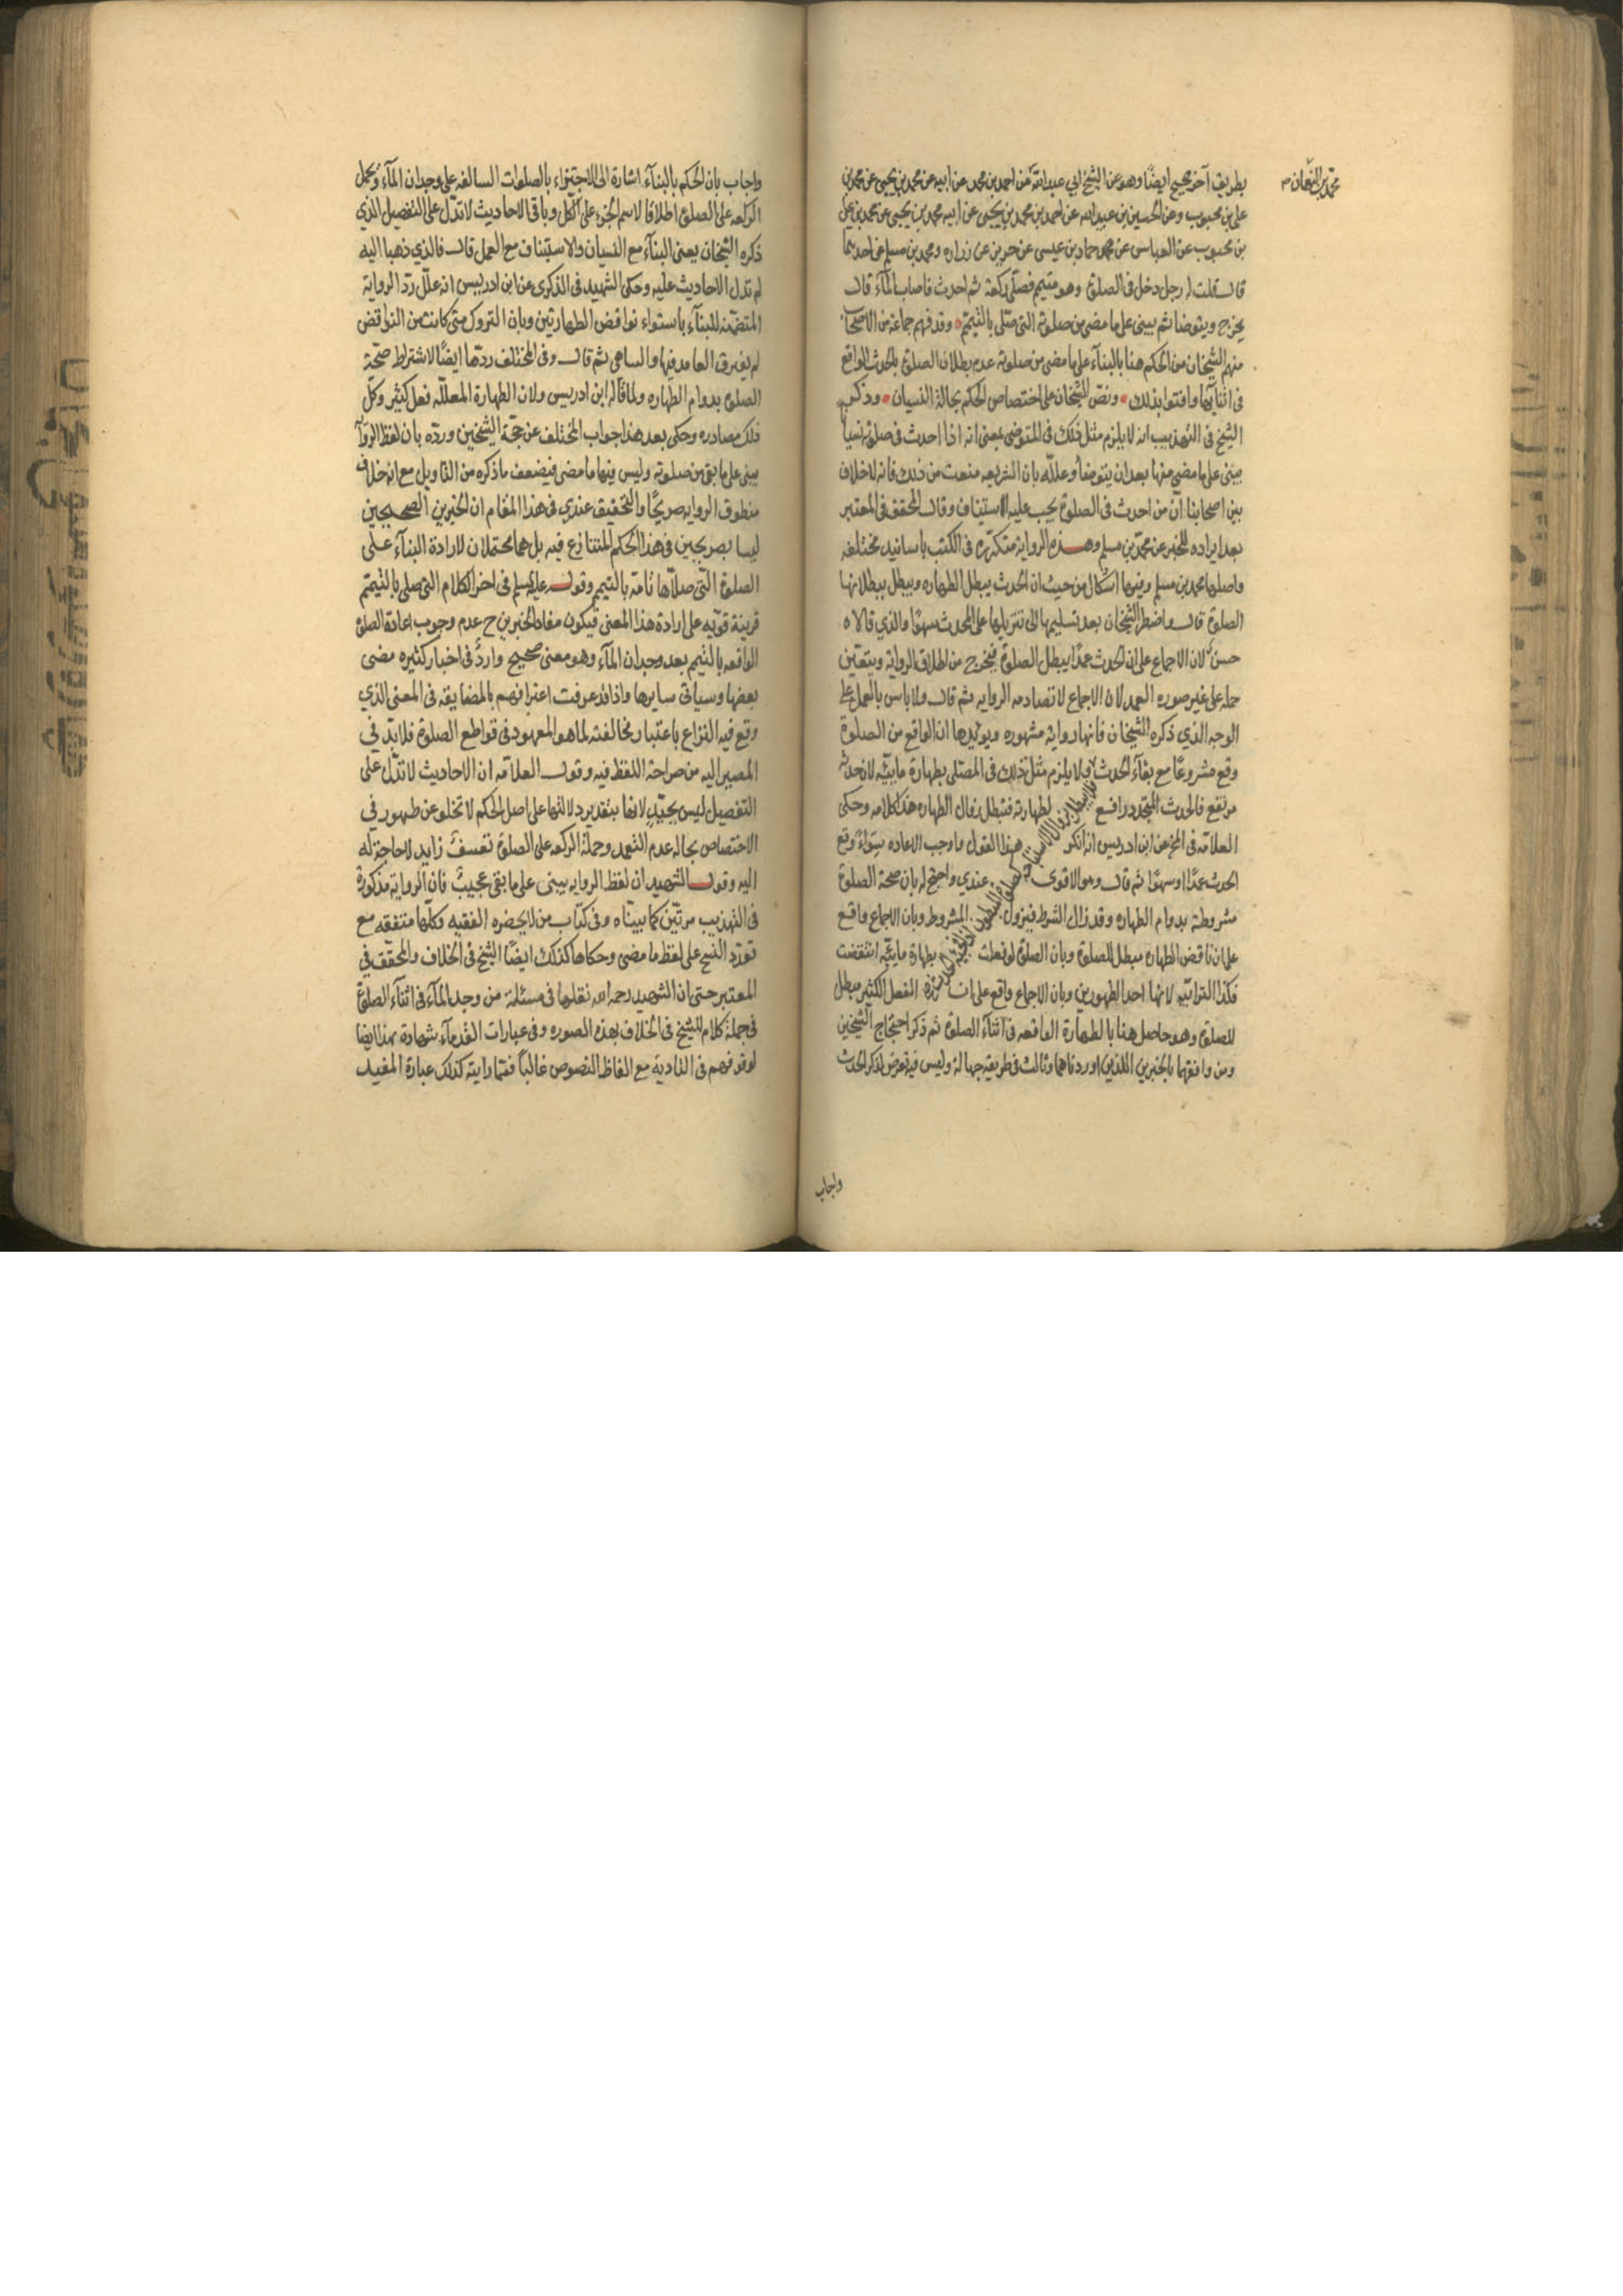 محمد بن النعمان
بطريق آخر صحيح ايضًا وهو عن الشيخ ابي عبد الله عن احمد بن محمد عن ابيه عن محمد بن يحيى عن محمد بن
علي بن محبوب وعن الحسين بن عبيد الله عن احمد بن محمد بن يحيى عن ابيه محمد بن يحيى عن محمد بن علي
بن محبوب عن العباس عن حماد بن عيسى عن حريز عن زراره ومحمد بن مسلم عن احدهما
قال قلت له رجل دخل في الصلوة وهو متيمم فصلى ركعة ثم احدث فاصاب الماء قال
يخرج ويتوضا ثم يبنى على ما مضى من صلوته التى صلى بالتيمم وقد فهم جماعة من الاصحاب
منهم الشيخان من الحكم هنا بالبنآء على ما مضى من صلوته عدم بطلان الصلوة بالحدث الواقع
في اثنائها وافتوا بذلك ونص الشيخان على اختصاص الحكم بحالة النسيان وذكر
الشيخ في التهذيب انه لا يلزم مثل ذلك في المتوضى بمعنى انه اذا احدث في صلوته ناسيا
يبنى على ما مضى منها بعد ان يتوضا وعلله بان الشريعه منعت من ذلك فانه لا خلاف
بين اصحابنا ان من احدث في الصلوة يجب عليه الاستيناف وقال المحقق في المعتبر
بعد ايراده للخبر عن محمد بن مسلم وهذه الرواية متكررة في الكتب باسانيد مختلفه
واصلها محمد بن مسلم وفيها اشكال من حيث ان الحدث يبطل الطهاره ويبطل ببطلانها
الصلوة قال واضطر الشيخان بعد تسليمها الى تنزيلها على المحدث سهوًا والذي قالاه
حسن لان الاجماع على ان الحدث عمدًا يبطل الصلوة فيخرج من اطلاق الرواية ويتعين
حملها على غير صوره العمد لان الاجماع لا تصادمه الروايه ثم قال ولا باس بالعمل على
الوجه الذي ذكره الشيخان فانها رواية مشهوره ويؤيدها ان الواقع من الصلوة
وقع مشروعًا مع بقآء الحدث فلا يبطل بزوال الاستباحة كصلوة المبطون اذا فجئه الحدث ولا يلزم مثل ذلك في المصلى بطهارة مائيّه لان حدثه
مرتفع فالحدث المتجدد رافع لطهارته فتبطل لزوال الطهاره هذا كلامه وحكى
العلامه في المخ عن ابن ادريس انه انكر هذا القول واوجب الاعاده سوآء وقع
الحدث عمدًا او سهوًا ثم قال وهو الاقوى عندي واحتج له بان صحة الصلوة
مشروطة بدوام الطهاره وقد زال الشرط فيزول المشروط وبان الاجماع واقع
على ان ناقض الطهاره مبطل للصلوة وبان الصلوة لو فعلت بطهارة مائيّه انتقضت
فكذا الترابيّه لانها احد الطهورين وبان الاجماع واقع على ان الفعل الكثير مبطل
للصلوة وهو حاصل هنا بالطهارة الواقعه في اثنآء الصلوة ثم ذكر احتجاج الشيخين
ومن وافقهما بالخبرين اللذين اوردناهما وثالث في طريقه جهالة وليس فيه تعرض لذكر الحدث
واجاب
واجاب بان الحكم بالبنآء اشارة الى الاجتزاء بالصلوات السالفه على وجدان المآء ويحمل
الركعه على الصلوة اطلاقا لاسم الجزء على الكل وباقى الاحاديث لا تدل على التفصيل الذي
ذكره الشيخان يعنى البنآء مع النسيان والاستيناف مع العمل قال فالذي ذهبا اليه
لم تدل الاحاديث عليه وحكى الشهيد في الذكرى عن ابن ادريس انه علل رد الرواية
المتضمنه للبنآء باستواء نواقض الطهارتين وبان التروك متى كانت من النواقض
لم يفترق العامد فيها والساهي ثم قال وفي المختلف ردها ايضًا لاشتراط صحّة
الصلوة بدوام الطهاره ولما قاله ابن ادريس ولان الطهارة المعللّه فعل كثير وكلّ
ذلك مصادره وحكى بعد هذا جواب المختلف عن حجة الشيخين وردّه بان لفظ الروآ
يبنى على ما بقى من صلوته وليس فيها ما مضى فيضعف ما ذكره من التاويل مع انه خلاف
منطوق الروايه صريحًا والتحقيق عندي في هذا المقام ان الخبرين الصحيحين
ليسا بصريحين في هذا الحكم المتنازع فيه بل هما محتملان لارادة البنآء على
الصلوة التى صلاها تامة بالتيمم وقوله عليه السلم في اخر الكلام التى صلى بالتيمم
قرينة قويه على ارادة هذا المعنى فيكون مفاد الخبرين ح عدم وجوب اعادة الصلوة
الواقعه بالتيمم بعد وجدان المآء وهو معنى صحيح واردٌ في اخبار كثيره مضى
بعضها وسياتى سايرها واذا قد عرفت اعترافهم بالمضايقه في المعنى الذي
وقع فيه النزاع باعتبار مخالفته لما هو المعهود في قواطع الصلوة فلا بد في
المصير اليه من صراحة اللفظ فيه وقول العلامه ان الاحاديث لا تدل على
التفصيل ليس بجيّد لانها بتقدير دلالتها على اصل الحكم لا تخلو عن ظهور في
الاختصاص بحالة عدم التعمد وحملة الركعه على الصلوة تعسف زايد لا حاجة له
اليه وقول الشهيد ان لفظ الروايه يبنى على ما بقى عجيبٌ فان الرواية مذكورة
في التهذيب مرتين كما بيناه وفي كتاب من لا يحضره الفقيه وكلها متفقه مع
تعدد النسخ على لفظ ما مضى وحكاها كذلك ايضًا الشيخ في الخلاف والمحقق في
المعتبر حتى ان الشهيد رحمه الله نقلها في مسئلة من وجد المآء في اثنآء الصلوة
في جملة كلام للشيخ في الخلاف بهذه الصوره وفي عبارات القدمآء شهادة بهذا ايضا
لوقوفهم في التادية مع الفاظ النصوص غالبًا فمما رايته كذلك عبارة المفيد